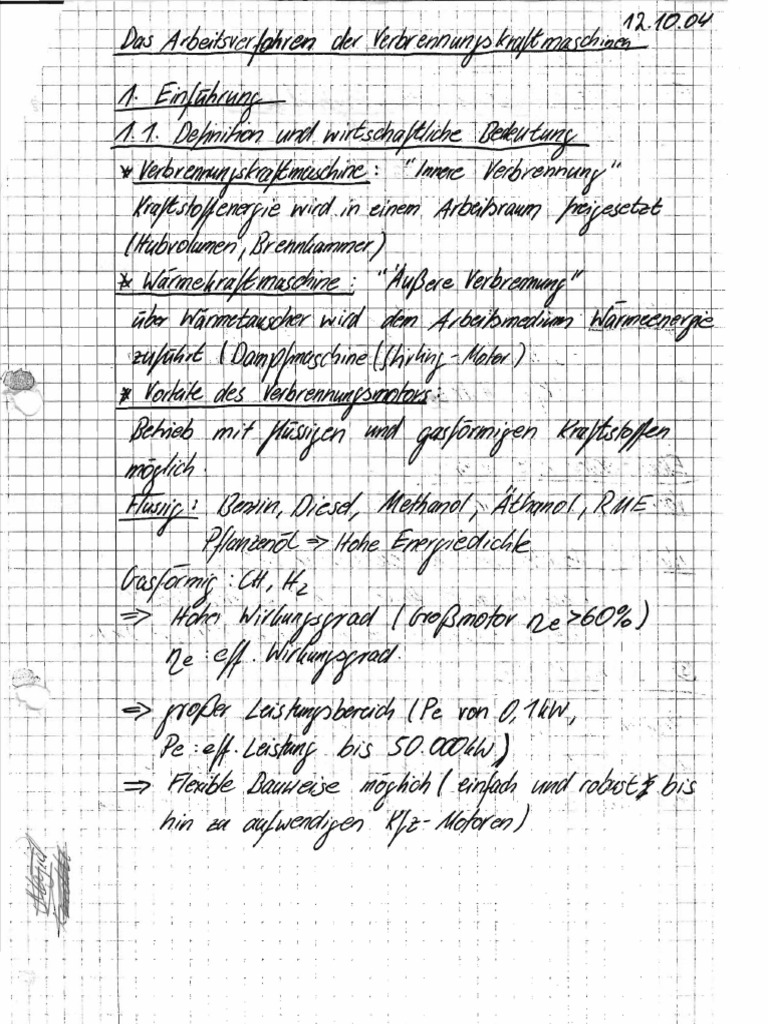 12.10.04
Das Arbeitsverfahren der Verbrennungskraftmaschinen
1. Einführung
1.1. Definition und wirtschaftliche Bedeutung
* Verbrennungskraftmaschine: "Innere Verbrennung"
Kraftstoffenergie wird in einem Arbeitsraum freigesetzt
(Hubvolumen, Brennkammer)
* Wärmekraftmaschine: "Äußere Verbrennung"
über Wärmetauscher wird dem Arbeitsmedium Wärmeenergie
zuführt (Dampfmaschine (Stirling-Motor)
* Vorteile des Verbrennungsmotors:
Betrieb mit flüssigen und gasförmigen Kraftstoffen
möglich.
Flüssig: Benzin, Diesel, Methanol, Äthanol, RME
Pflanzenöl => Hohe Energiedichte
Gasförmig: CH, H₂
=> Hoher Wirkungsgrad (Großmotor ηe >60%)
ηe : eff. Wirkungsgrad.
=> großer Leistungsbereich (Pe von 0,1kW,
Pe: eff. Leistung bis 50.000kW)
=> Flexible Bauweise möglich (einfach und robust bis
hin zu aufwendigen Kfz-Motoren)